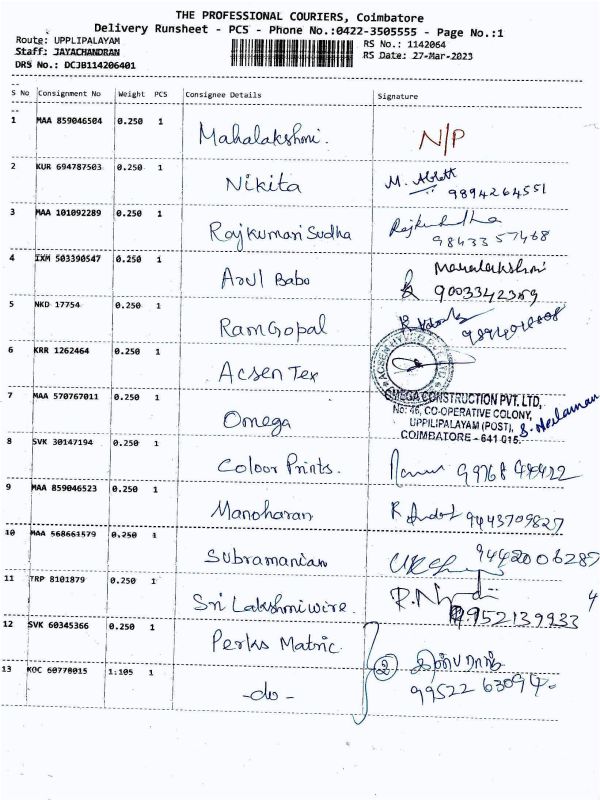 THE PROFESSIONAL COURIERS, Coimbatore
Delivery Runsheet - PCS - Phone No.:0422-3505555 - Page No.:1
Route: UPPLIPALAYAM
Staff: JAYACHANDRAN
DRS No.: DCJB114206401
RS No.: 1142064
RS Date: 27-Mar-2023
S No Consignment No Weight PCS Consignee Details Signature
1 MAA 859046504 0.250 1 Mahalakshmi. N/P
2 KUR 694787503 0.250 1 Nikita M.
9894264551
3 MAA 101092289 0.250 1 Rajkumari Sudha
9843357468
4 IXM 503390547 0.250 1 Arul Babo Mahalakshmi
9003342389
5 NKD 17754 0.250 1 Ram Gopal
6 KRR 1262464 0.250 1 Acsen Tex
7 MAA 570767011 0.250 1 Omega
OMEGA CONSTRUCTION PVT. LTD,
No: 46, CO-OPERATIVE COLONY,
UPPILIPALAYAM (POST),
COIMBATORE - 641 015.
8 SVK 30147194 0.250 1 Coloor Prints.
9 MAA 859046523 0.250 1 Manoharan 9443709827
10 MAA 568661579 0.250 1 Subramanian 9442006287
11 TRP 8101879 0.250 1 Sri Lakshmi wire. 4
9952139933
12 SVK 60345366 0.250 1 Perks Matric
13 KOC 60778015 1.105 1 -do- 2
99522 63094.